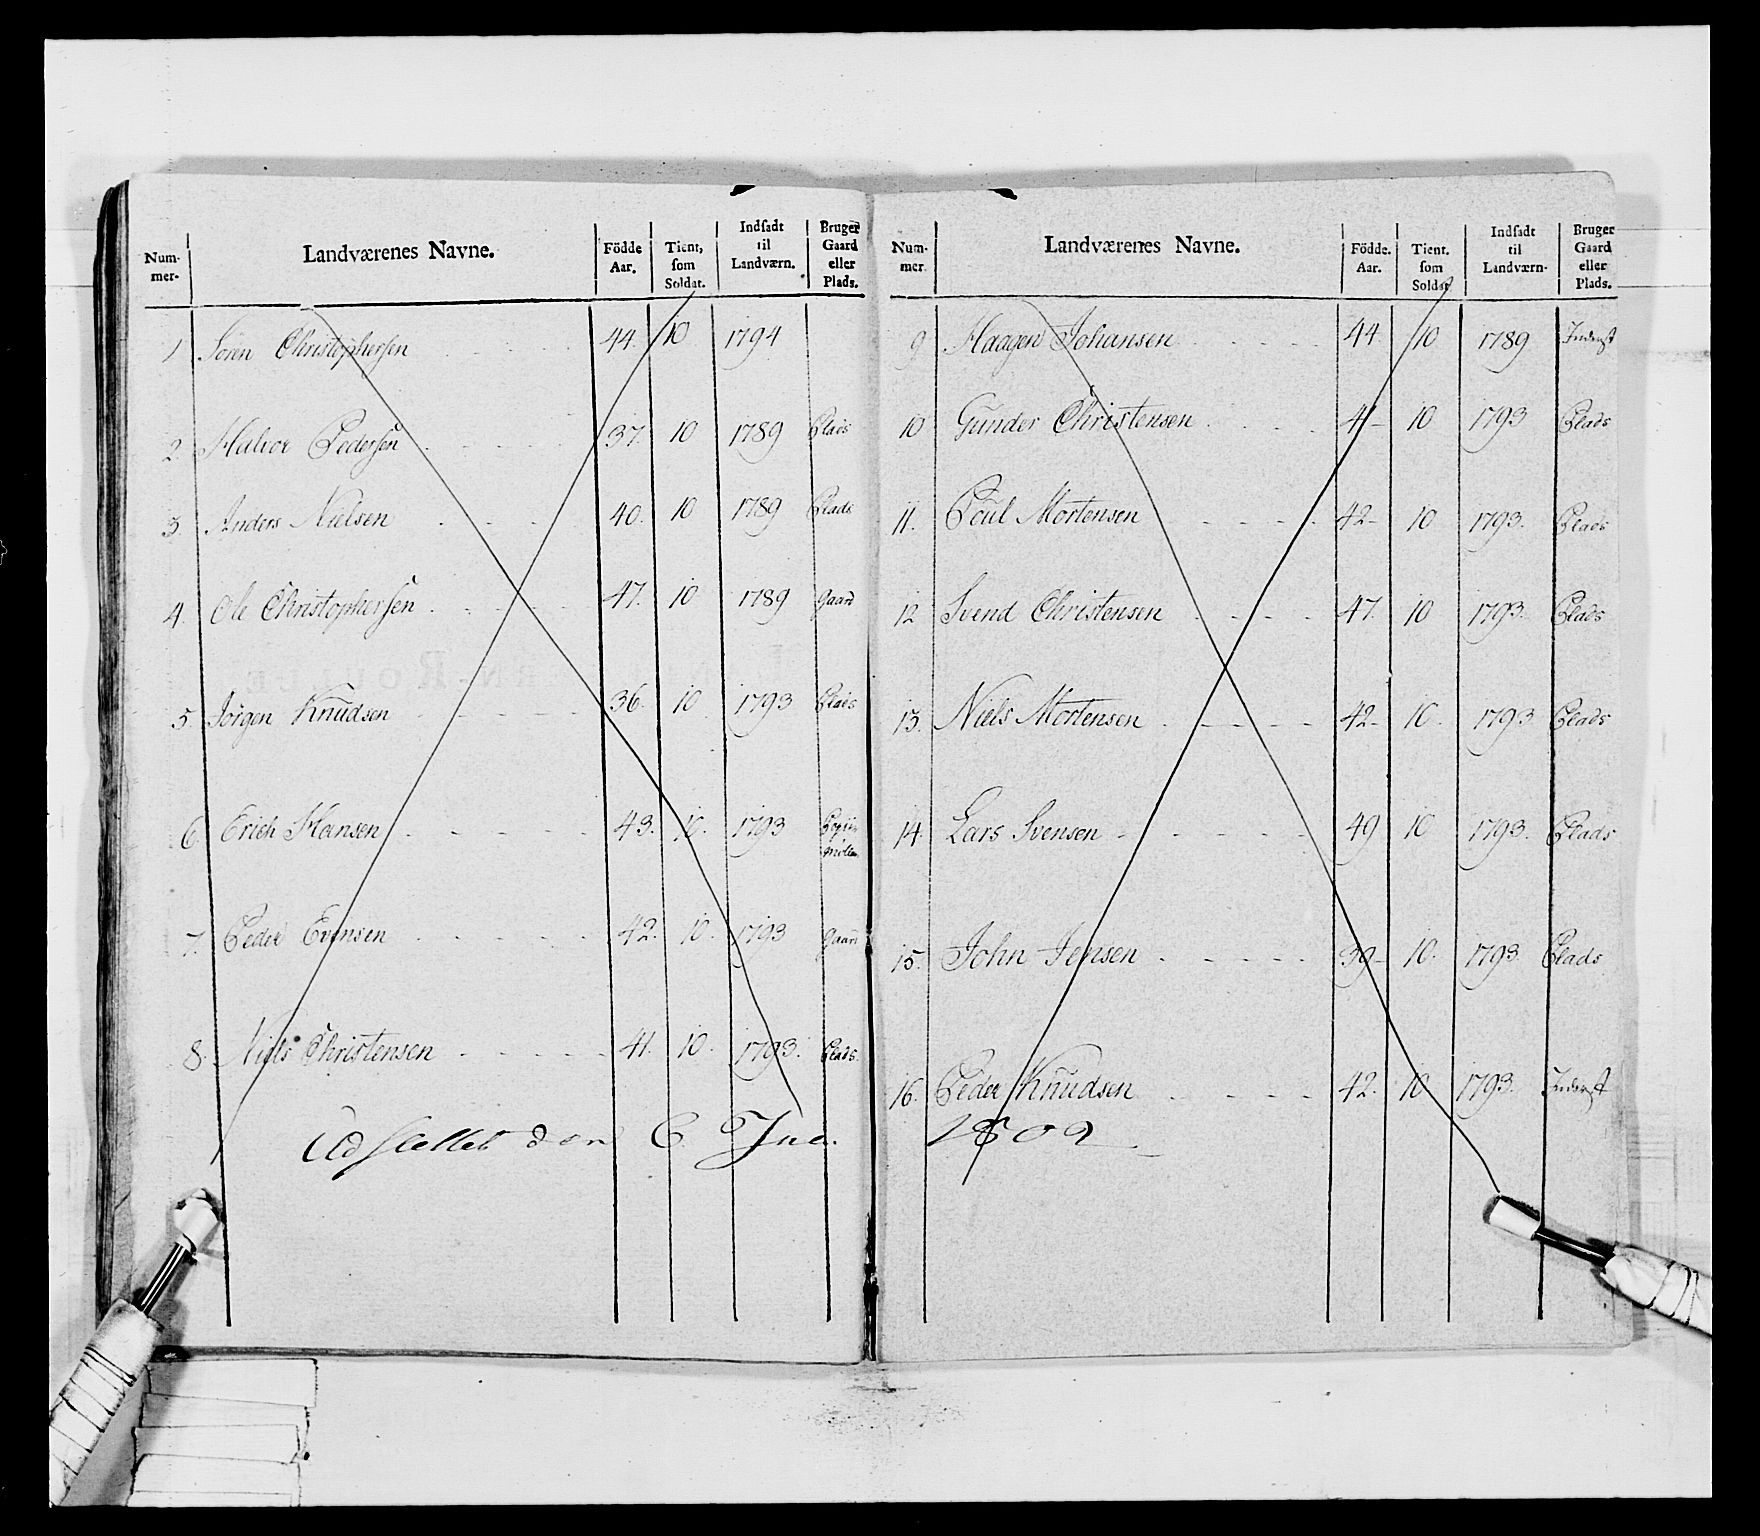 Num-
mer.
Landværenes Navne.
Födde
Aar.
Tient,
som
Soldat.
Indsadt
til
Landværn.
Bruger
Gaard
eller
Plads.
1 Sörn Christophersen 44. 10 1794
2. Halvor Pedersen 37. 10 1789 Plads
3. Anders Nielsen 40. 10 1789 Plads
4. Ole Christophersen 47. 10 1789 Gaard
5. Jörgen Knudsen 36. 10 1793 Plads
6. Erich Hansen 43. 10. 1793
7. Peder Evensen 42. 10. 1793 Gaard
8. Niels Christensen 41. 10. 1793. Plads.
Num-
mer.
Landværenes Navne.
Födde.
Aar.
Tient.
som
Soldat
Indsadt
til
Landværn.
Bruger
Gaard
eller
Plads.
9 Haagen Johansen 44. 10 1789 Inderst
10 Gunder Christensen 41- 10 1793 Plads
11. Poul Mortensen 42- 10 1793. Plads
12 Svend Christensen 47. 10 1793. Plads
13. Niels Mortensen 42- 10. 1793 Plads
14. Lars Svensen 49 10 1793. Plads
15. John Jensen 39- 10. 1793 Plads
16. Peder Knudsen 42. 10 1793. Inderst
Udslettet den 6. Jul. 1802